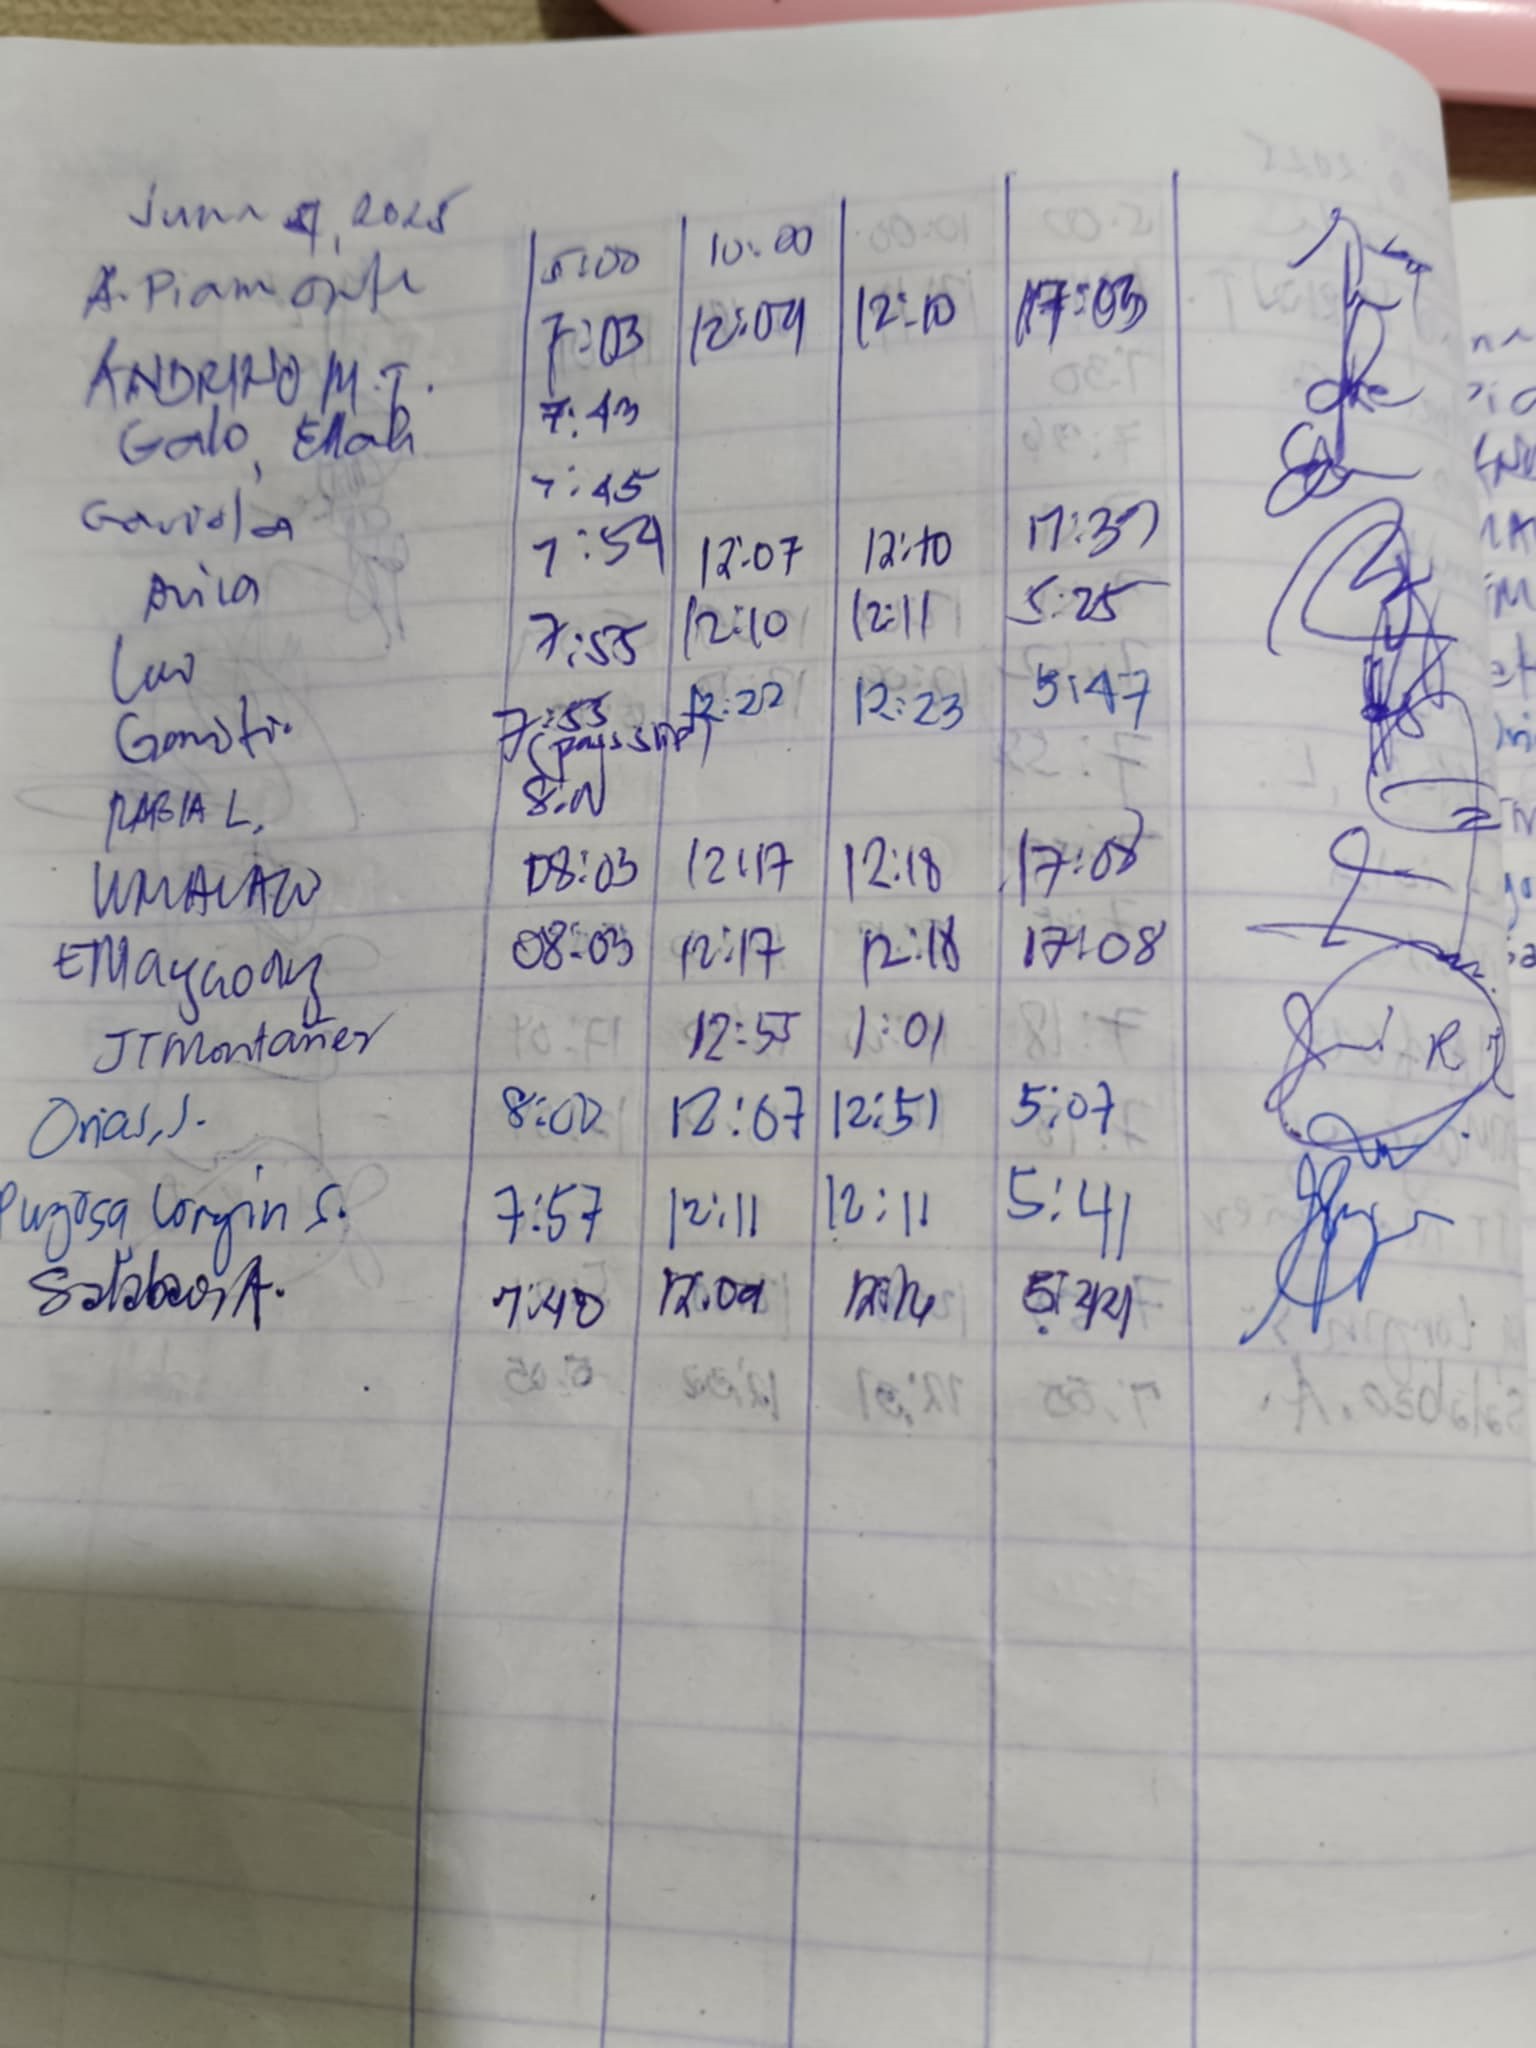 June 9, 2025
A. Piamonte 5:00 10:00
ANDRINO M.T. 7:03 12:09 12:10 17:03
Galo, Ellah 7:43
Gaviola 7:45
Avila 7:54 12:07 12:10 17:37
Luo 7:55 12:10 12:11 5:25
7:55 12:22 12:23 5:47
(pays slip)
RABIA L. 8:01
08:03 12:17 12:18 17:08
EMaygonz 08:03 12:17 12:18 17:08
JTMontañer 12:55 1:01
Orias, J. 8:00 12:07 12:51 5:07
Pugosa Longin S. 7:57 12:11 12:11 5:41
Salabao, A. 7:40 12:09 12:14 5:44